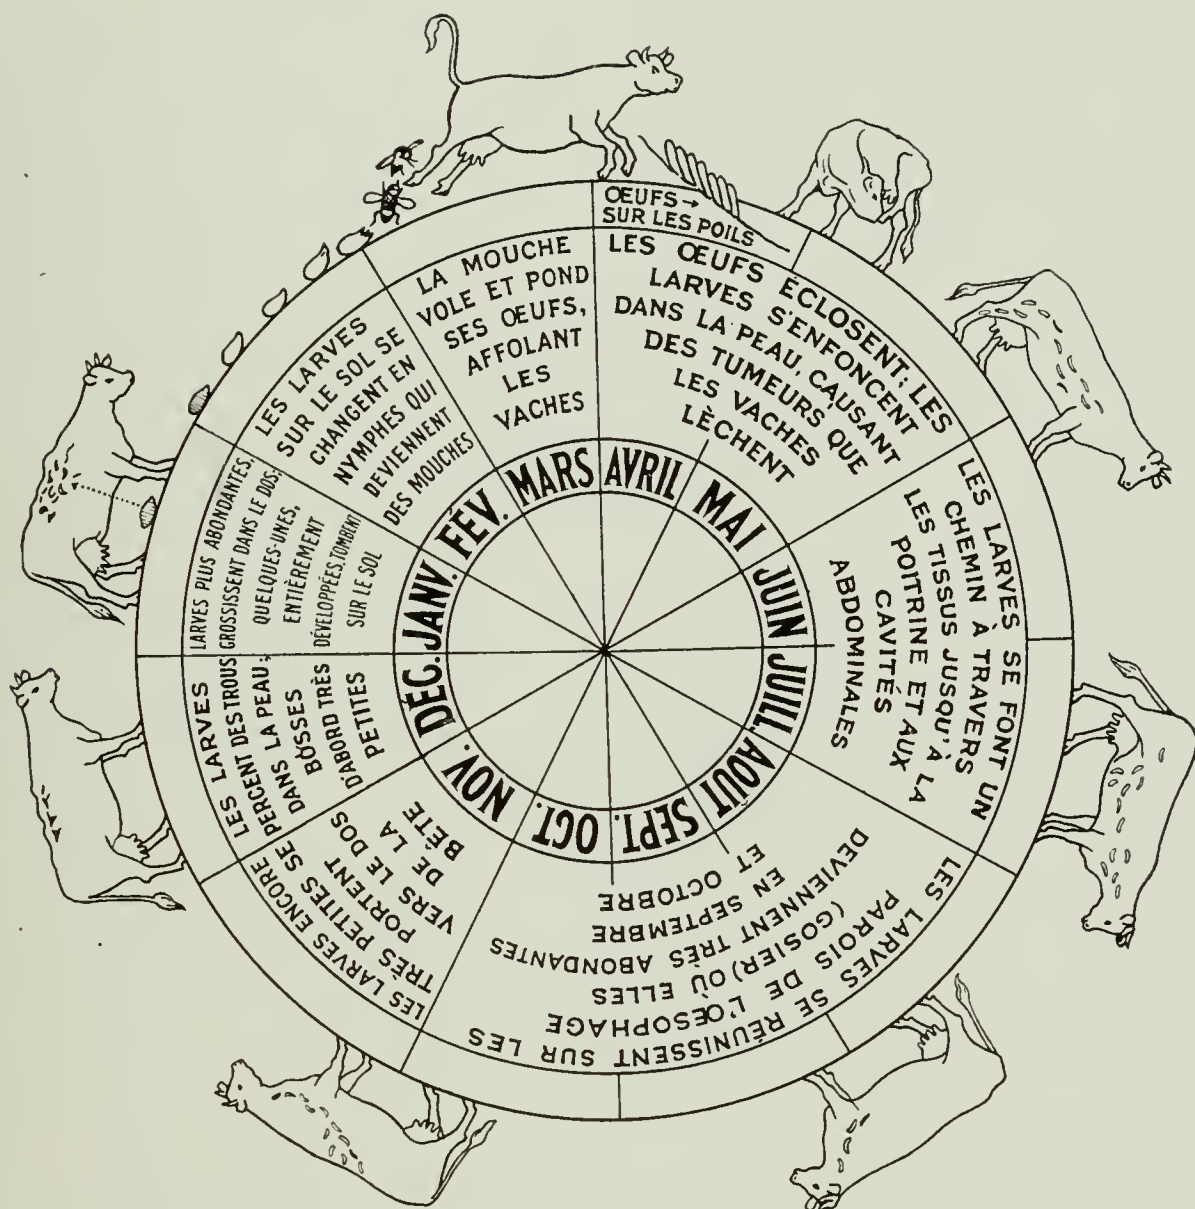 ŒUFS→
SUR LES POILS
LA MOUCHE
VOLE ET POND
SES ŒUFS,
AFFOLANT
LES
VACHES
LES ŒUFS ÉCLOSENT; LES
LARVES S'ENFONCENT
DANS LA PEAU, CAUSANT
DES TUMEURS QUE
LES VACHES
LÈCHENT
LES LARVES SE FONT UN
CHEMIN À TRAVERS
LES TISSUS JUSQU'À LA
POITRINE ET AUX
CAVITÉS
ABDOMINALES
LES LARVES SE RÉUNISSENT SUR LES
PAROIS DE L'ŒSOPHAGE
(GOSIER) OÙ ELLES
DEVIENNENT TRÈS ABONDANTES
EN SEPTEMBRE
ET OCTOBRE
LES LARVES ENCORE
TRÈS PETITES SE
PORTENT
VERS LE DOS
DE LA
BÊTE
LES LARVES
PERCENT DES TROUS
DANS LA PEAU;
BOSSES
D'ABORD TRÈS
PETITES
LARVES PLUS ABONDANTES,
GROSSISSENT DANS LE DOS;
QUELQUES-UNES,
ENTIÈREMENT
DÉVELOPPÉES, TOMBENT
SUR LE SOL
LES LARVES
SUR LE SOL SE
CHANGENT EN
NYMPHES QUI
DEVIENNENT
DES MOUCHES
JANV.
FÉV.
MARS
AVRIL
MAI
JUIN
JUILL.
AOÛT
SEPT.
OCT.
NOV.
DÉC.